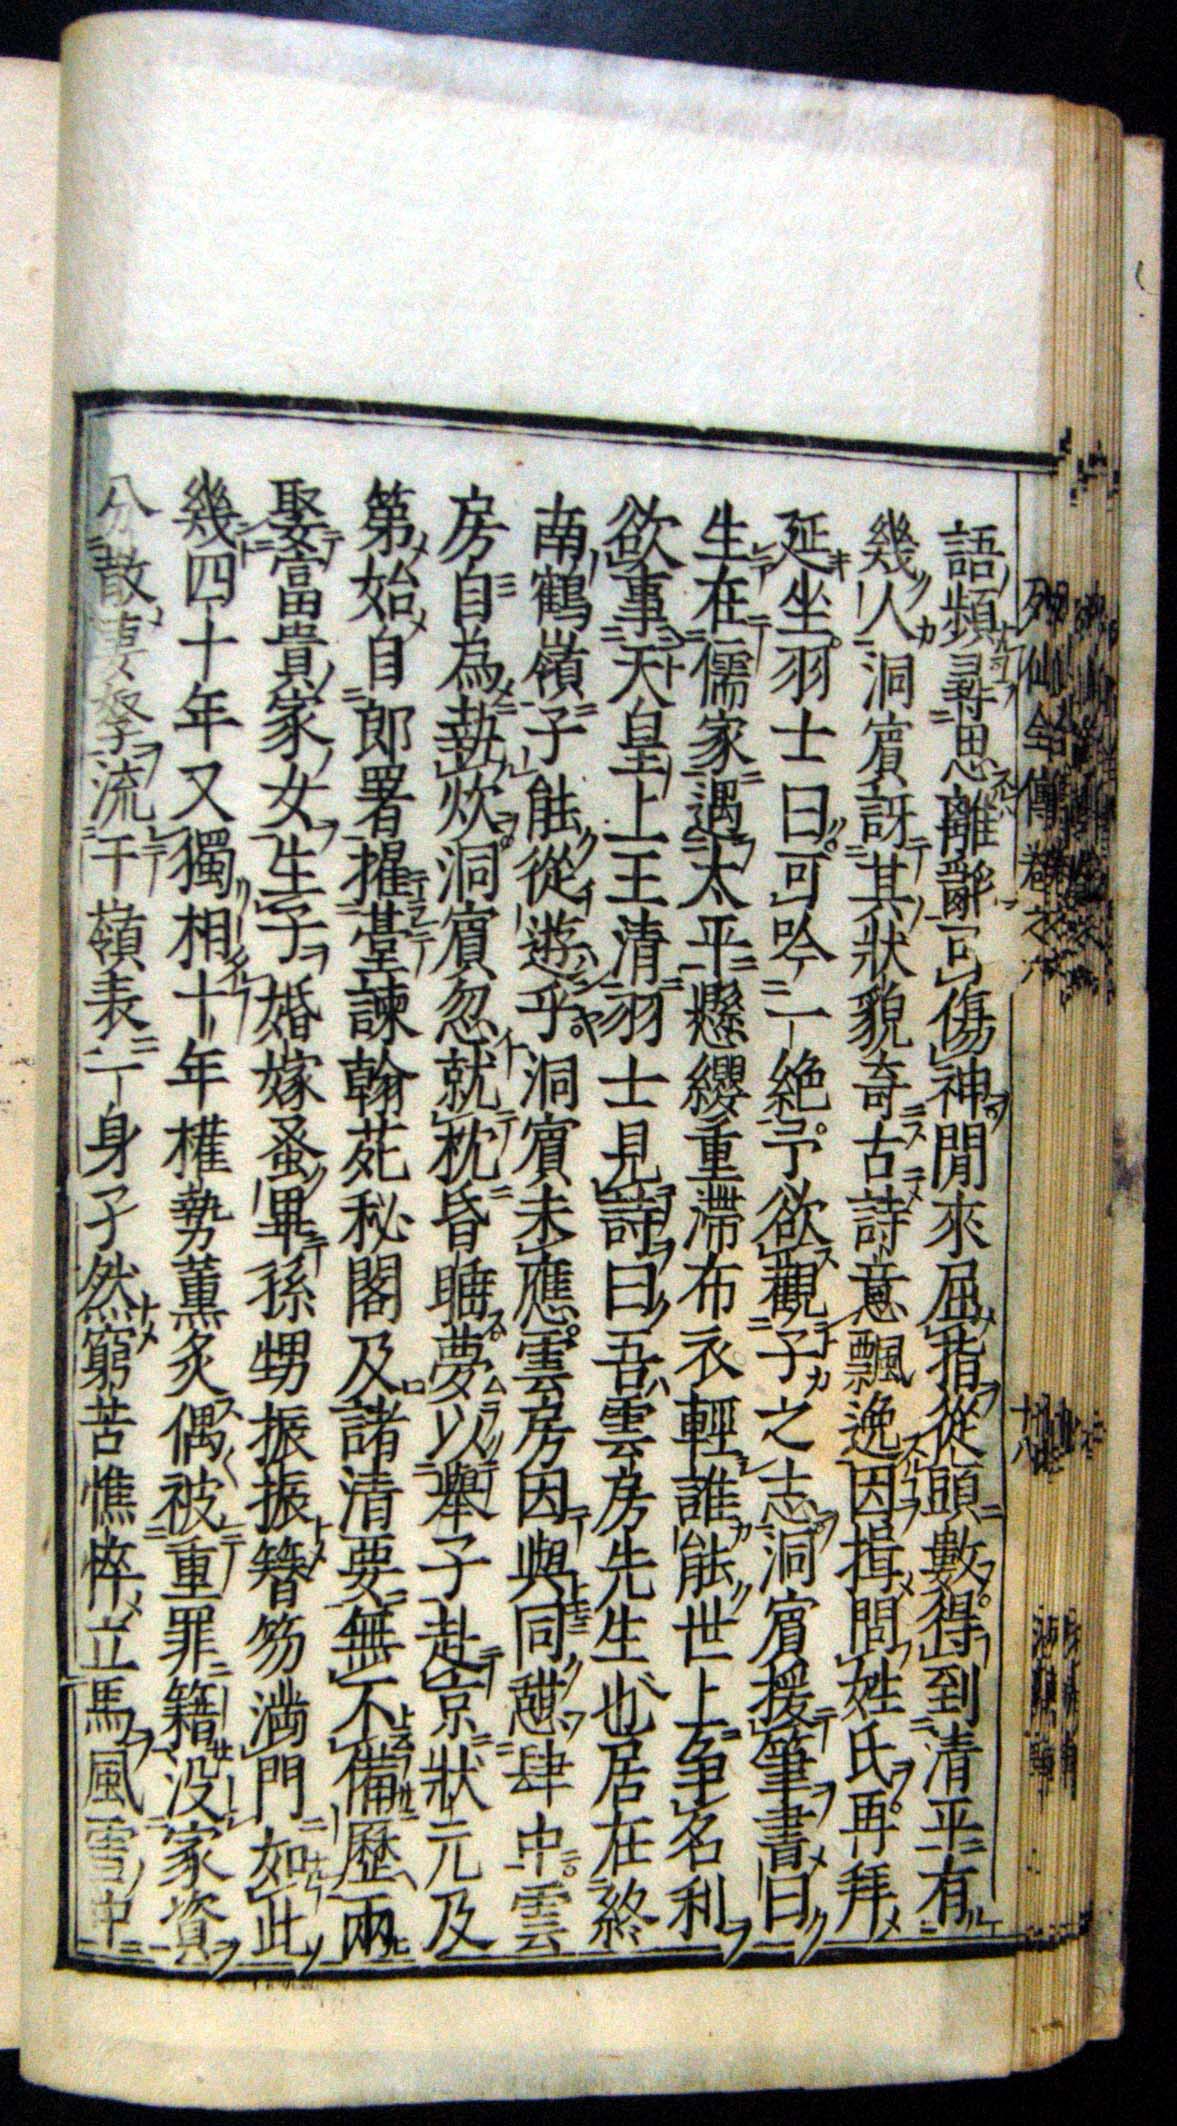 語頻尋思離亂可傷神閒來屈指從頭數得到清平有
幾人洞賓訝其狀貌奇古詩意飄逸因揖問姓氏再拜
延坐羽士曰可吟一絶予欲觀子之志洞賓援筆書曰
生在儒家遇太平懸纓重滯布衣輕誰能世上争名利
欲事天皇上玉清羽士見詩曰吾雲房先生也居在終
南鶴嶺子能從遊乎洞賓未應雲房因與同憩肆中雲
房自為執炊洞賓忽就枕昏睡夢以舉子赴京狀元及
第始自郎署擢臺諫翰苑秘閣及諸清要無不備歷兩
娶富貴家女生子婚嫁蚤畢孫甥振振簪笏満門如此
幾四十年又獨相十年權勢薫炙偶被重罪籍没家資
分散妻孥流于嶺表一身孑然窮苦憔悴立馬風雪中
列仙全傳卷之六
十八